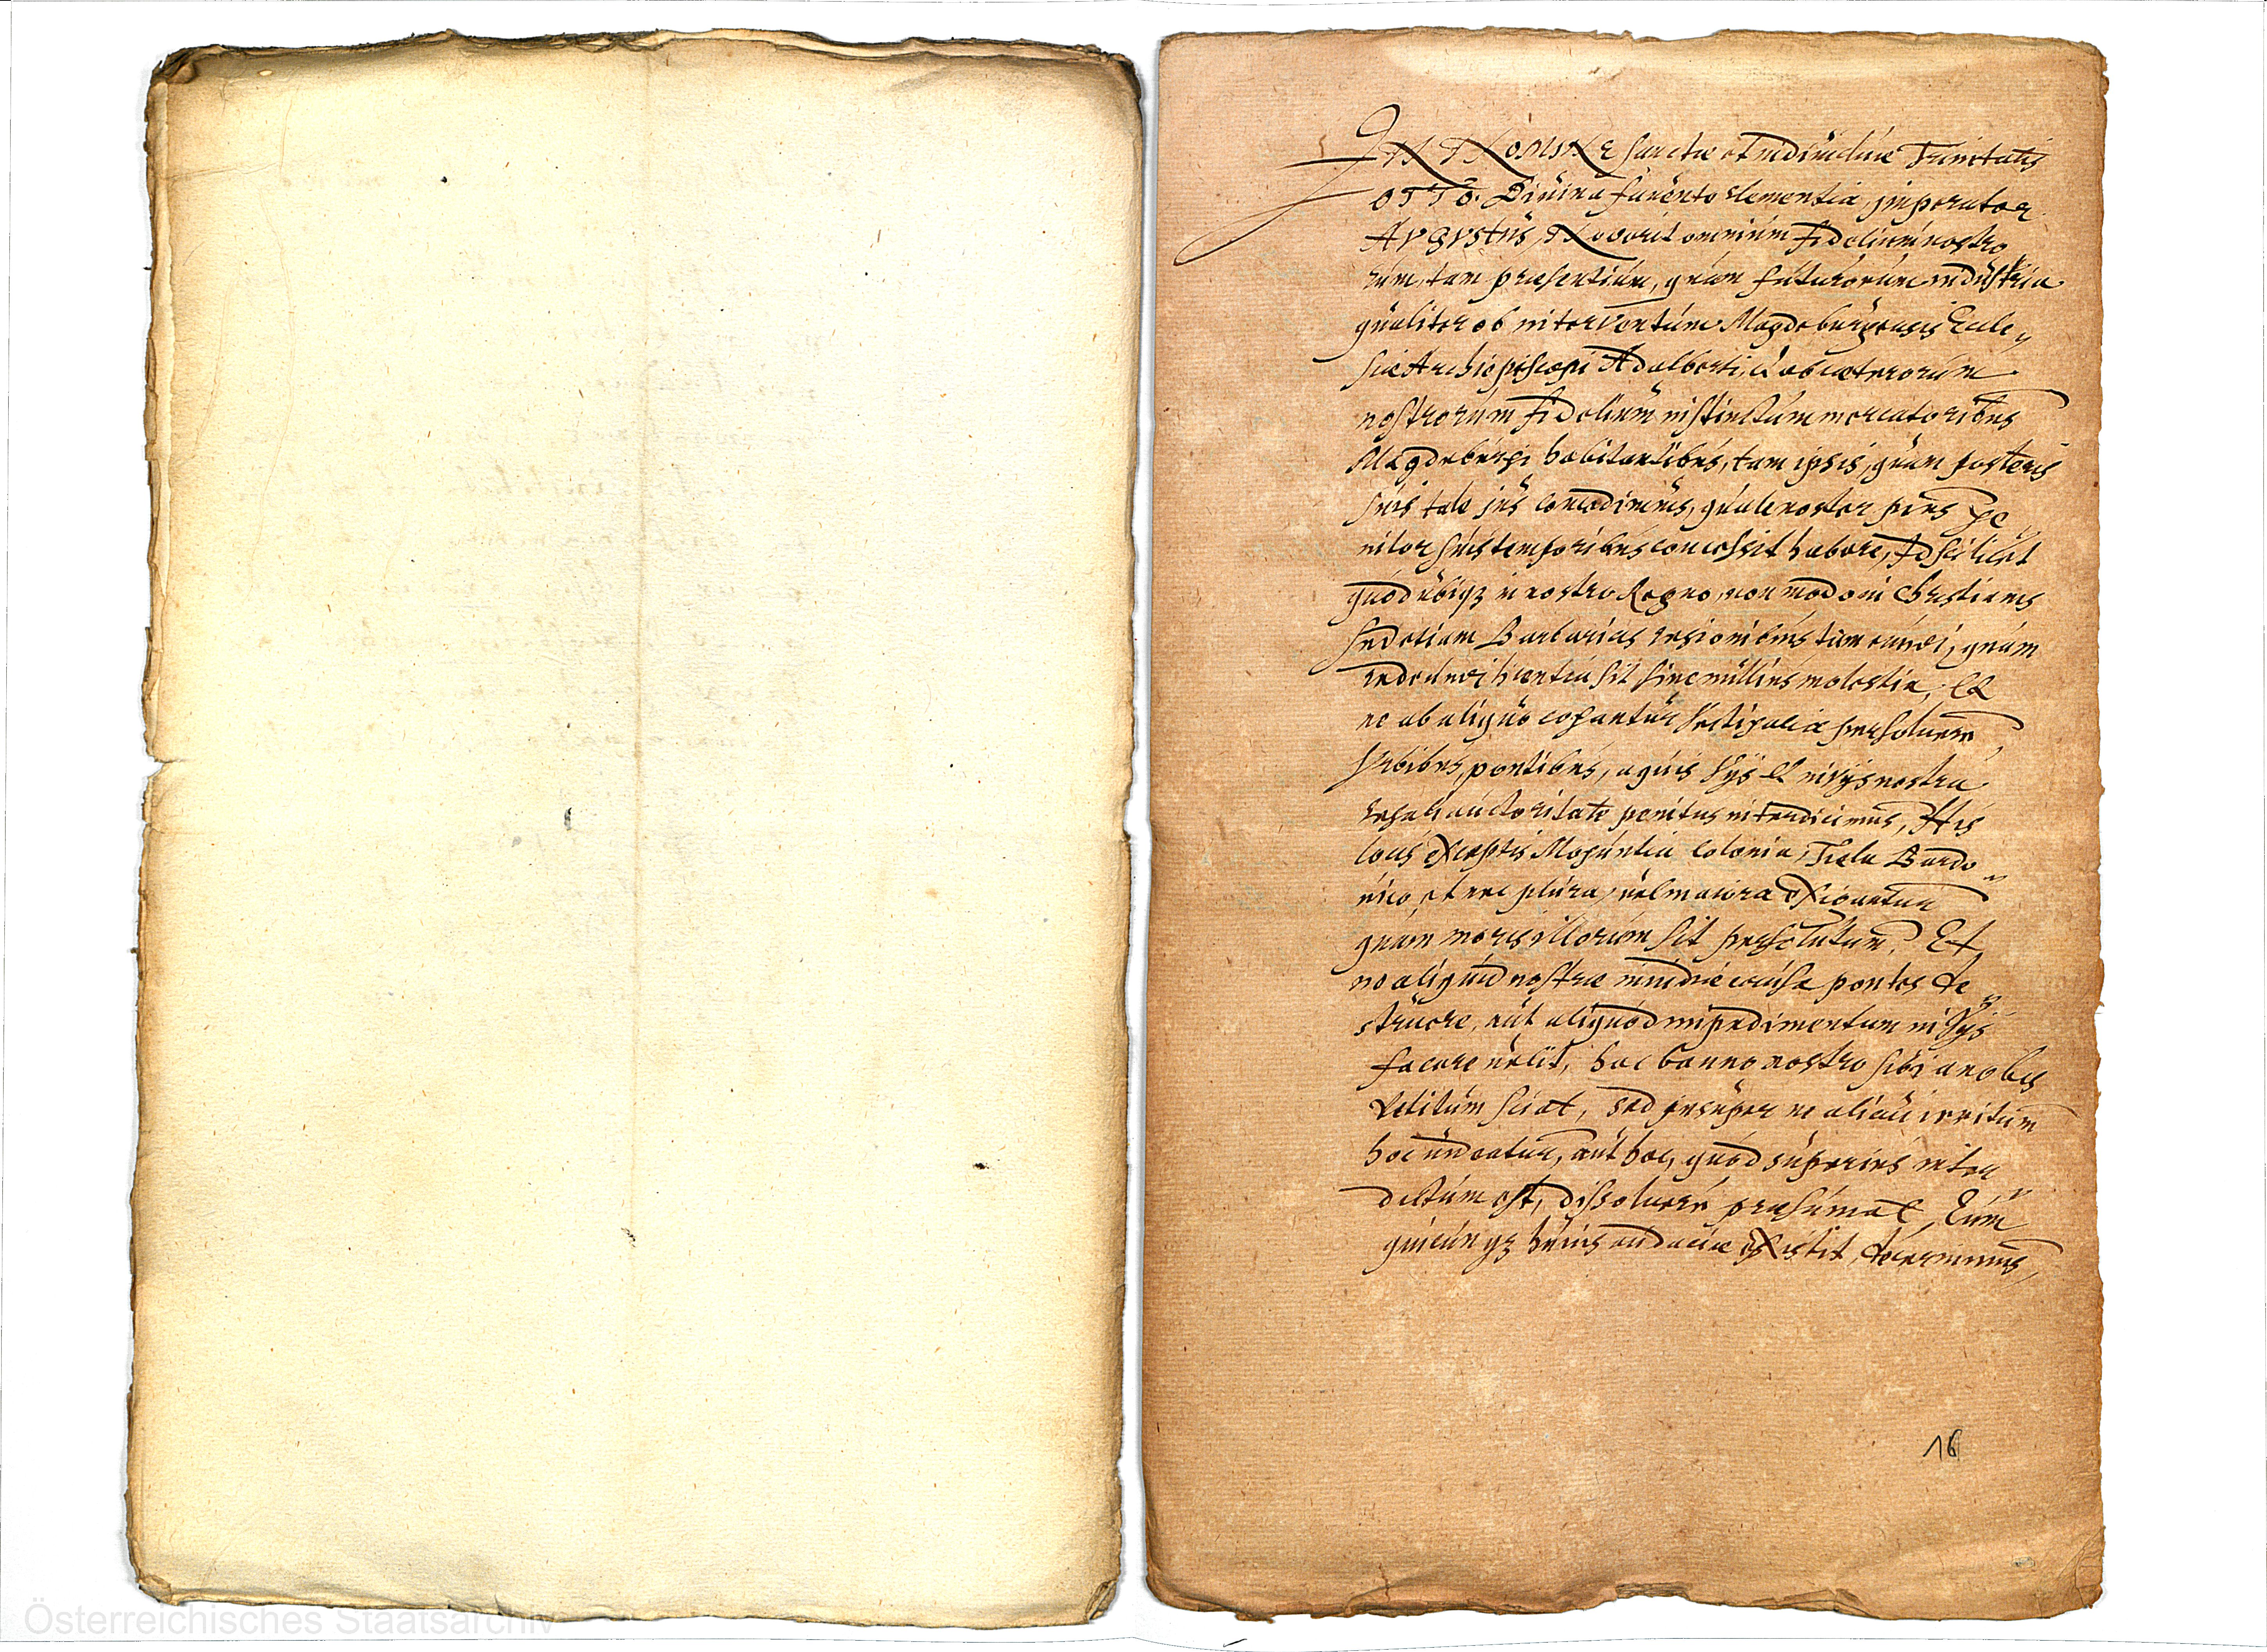 IN NOMINE sanctæ et individuæ Trinitatis
OTTO. Divina favente clementia, imperator
AVGVSTVS, Noverit omnium fidelium nostro
rum, tam præsentium, quàm futurorum industria
qualiter ob interventum Magdeburgensis Eccle„
siæ Archiepiscopi Adalberti, & ob cæterorum
nostrorum fidelium instinctum mercatoribus
Magdeburgi habitantibus, tam ipsis, quàm posteris
suis tale jus concedimus, quale noster pius ge„
nitor suis temporibus concessit habere, Id scilicet
quòd ubiq3 in nostro Regno, non modo in Christianis
sed etiam Barbaricis regionibus tam eundi, quàm
redeundi licentia sit sine ullius molestia, Et
ne ab aliquo cogantur vectigalia persoluere
Vrbibus, pontibus, aquis vijs et invijs nostra
regali auctoritate penitus interdicimus, His
locis exceptis Moguntia Colonia, Tiela Bardo„
vico, et nec plura, vel maiora exigantur
quam moris illorum sit persolutum. Et
ne aliquid nostræ invidiæ causa pontes de„
struere, aut aliquod impedimentum in vijs
facere velit, hoc banno nostro sibi a nobis
vetitum sciat, sed insuper ne alicui irritum
hoc videatur, aut hoc, quòd superius inter„
dictum est, dissoluere præsumat, Cum
quicunq3 huius audaciæ existit, decernimus,
16
Österreichisches Staatsarchiv